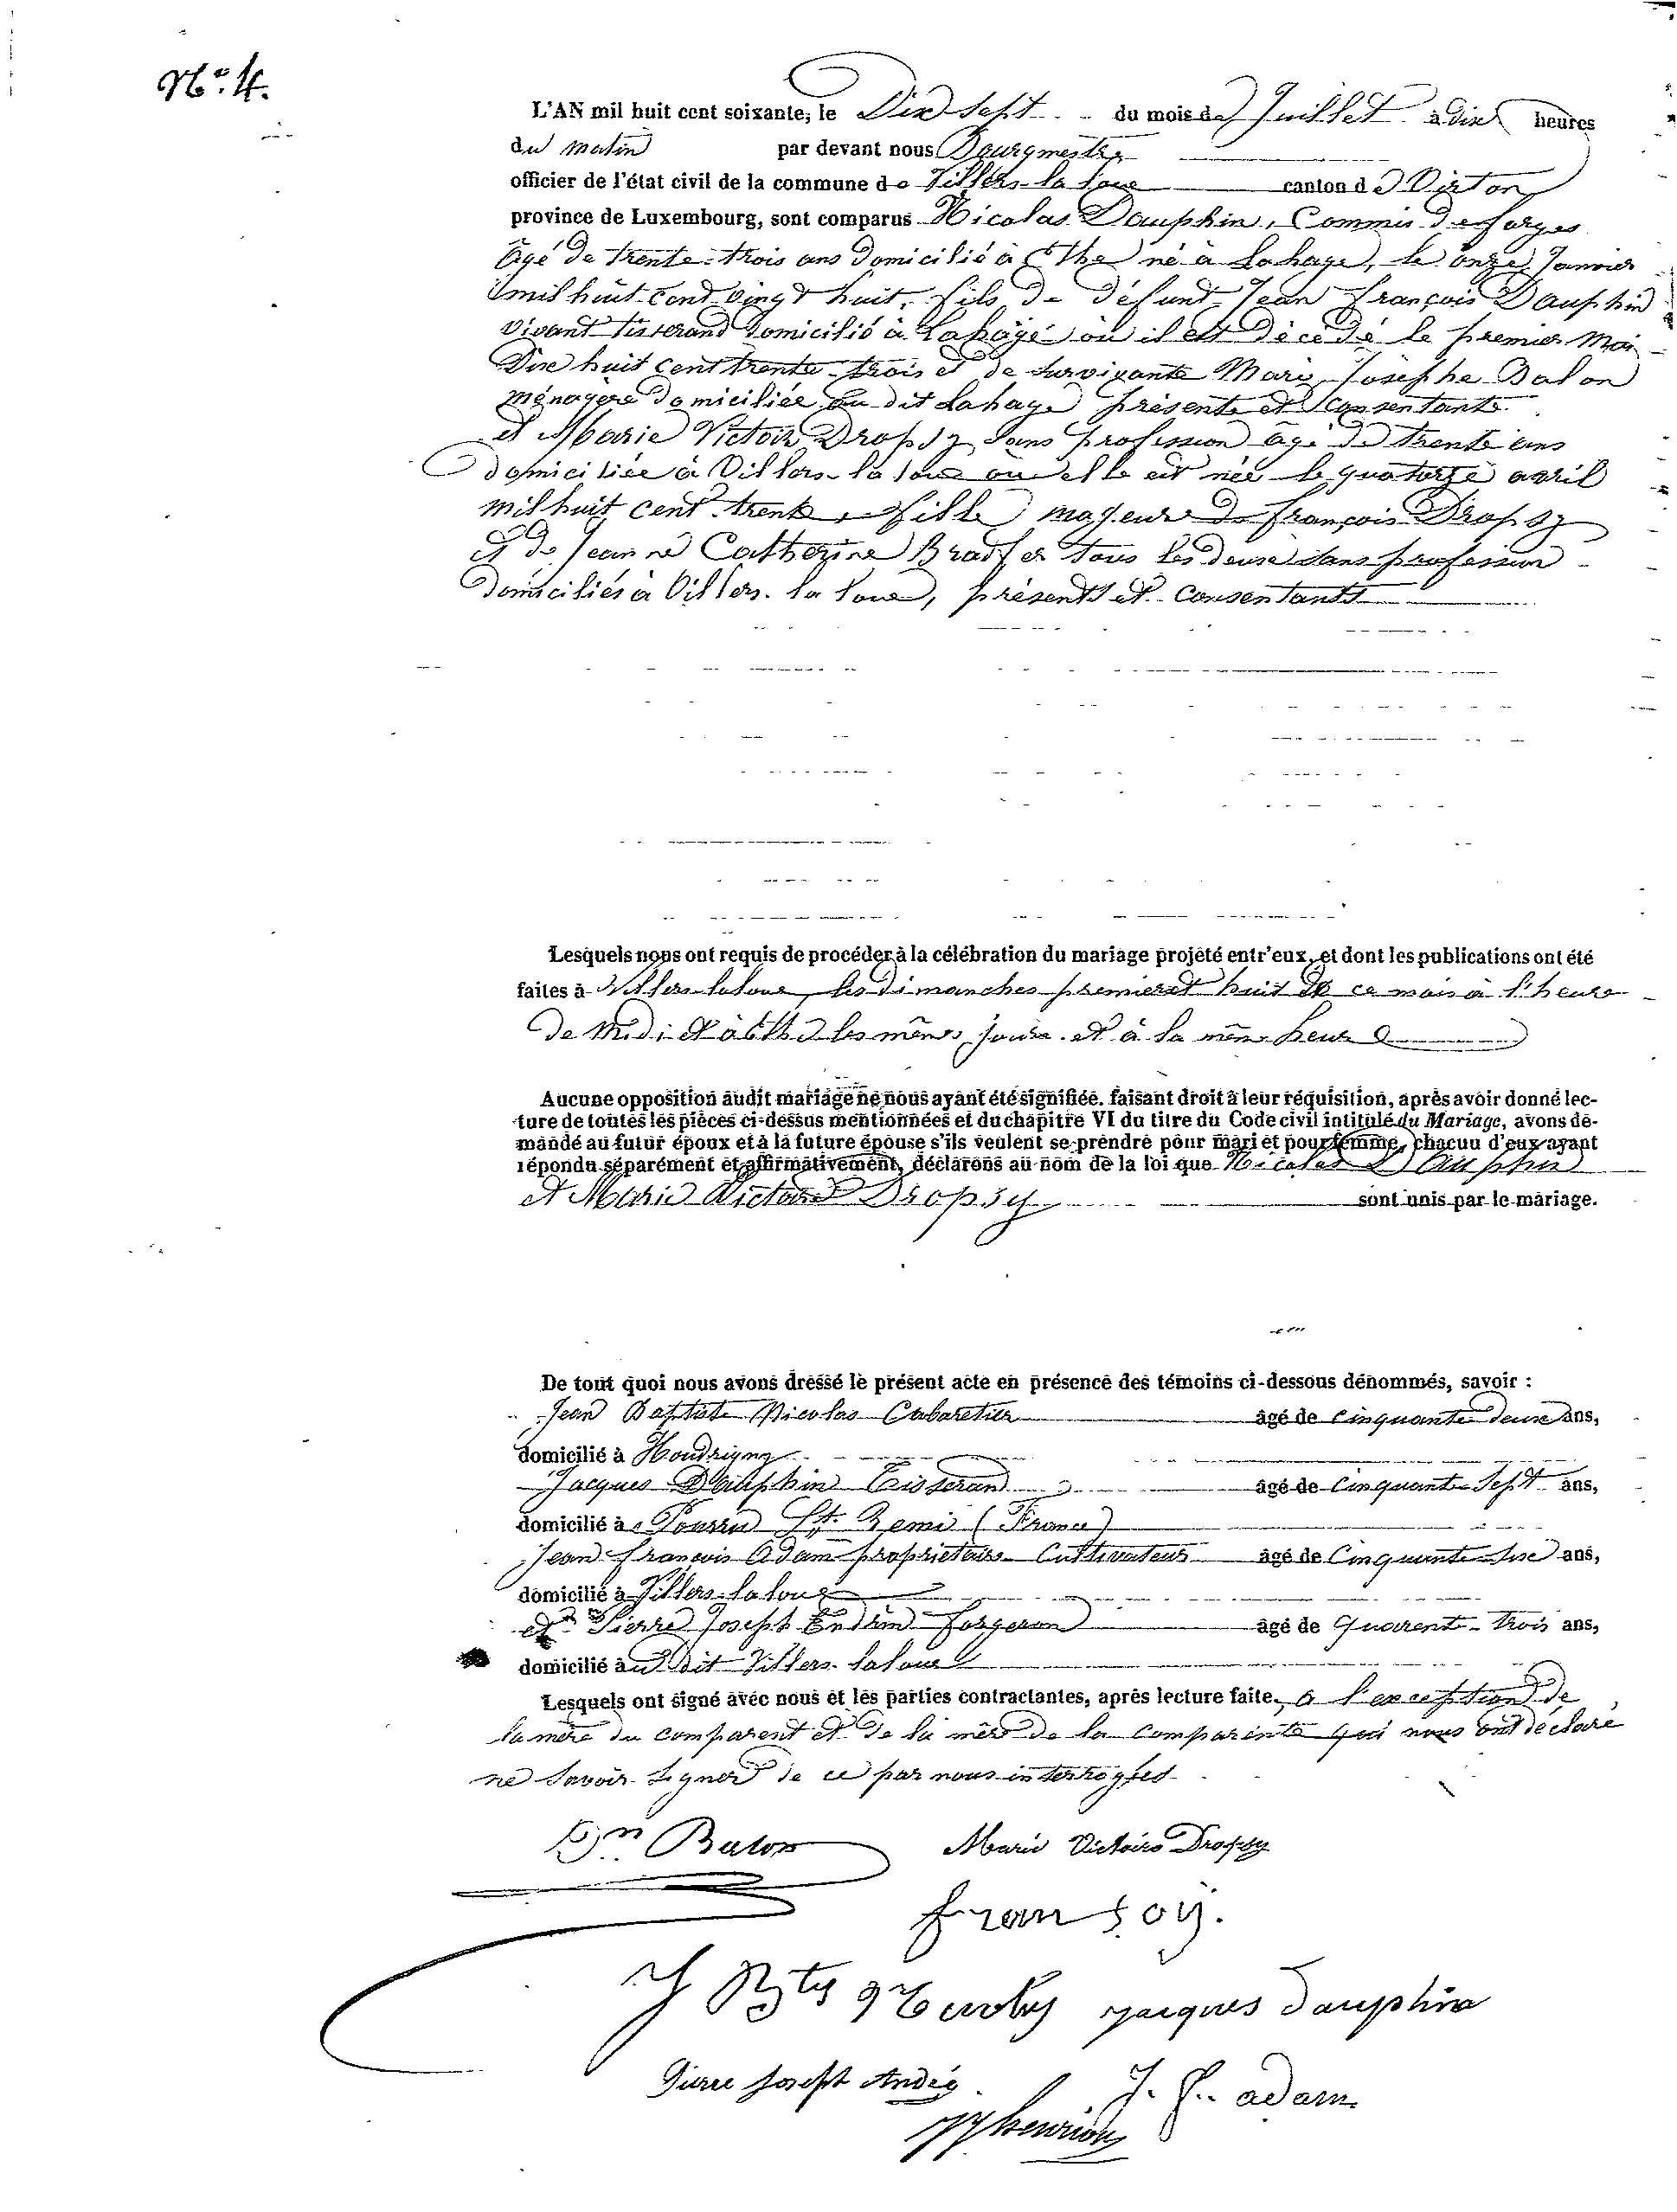 N.° 4.
L'AN mil huit cent soixante, le Dix sept du mois de Juillet à dix heures
du matin par devant nous Bourgmestre
officier de l'état civil de la commune de Villers-la-loue canton de Virton
province de Luxembourg, sont comparus Nicolas Dauphin, Commis de forges
âgé de trente-trois ans domicilié à Ethe né à Lahage, le onze Janvier
mil huit cent vingt huit, fils de défunt Jean François Dauphin
vivant tisserand domicilié à Lahage où il est décédé le premier Mai
Dix huit cent trente-trois et de survivante Marie Josephe Balon
ménagère domiciliée au dit Lahage présente et Consentante
et Marie Victoire Dropsy sans profession âgé de trente ans
domiciliée à Villers-la-loue où elle est née le quatorze avril
mil huit cent trente, fille majeure de François Dropsy
et de Jeanne Catherine tous les deux sans profession
domiciliés à Villers-la-loue, présents et Consentants
Lesquels nous ont requis de procéder à la célébration du mariage projeté entr'eux, et dont les publications ont été
faites à Villers-laloue, les dimanches premier et huit de ce mois à l'heure
de midi et à Ethe les mêmes jours et à la même heure
Aucune opposition audit mariage ne nous ayant été signifiée. faisant droit à leur réquisition, après avoir donné lec-
ture de toutes les pièces ci-dessus mentionnées et du chapitre VI du titre du Code civil intitulé du Mariage, avons de-
mandé au futur époux et à la future épouse s'ils veulent se prendre pour mari et pour femme, chacun d'eux ayant
répondu séparément et affirmativement, déclarons au nom de la loi que Nicolas Dauphin
et Marie Victoire Dropsy sont unis par le mariage.
De tout quoi nous avons dressé le présent acte en présence des témoins ci-dessous dénommés, savoir :
Jean Baptiste Nicolas Cabaretier âgé de Cinquante deux ans,
domicilié à Houdrigny
Jacques Dauphin Tisserand âgé de Cinquante Sept ans,
domicilié à Pourru St. Remi (France)
Jean françois Adam propriétaire Cultivateur âgé de Cinquante-six ans,
domicilié à Villers-la loue
et Pierre Joseph forgeron âgé de Quarente-trois ans,
domicilié au dit Villers-laloue
Lesquels ont signé avec nous et les parties contractantes, après lecture faite, à l'exception de
la mère du comparent et de la mère de la comparente qui nous ont déclaré
ne savoir signer de ce par nous interrogées
Marie Victoire Dropsy
fransoy.
jacques dauphin
Pierre Joseph
J. F. adam